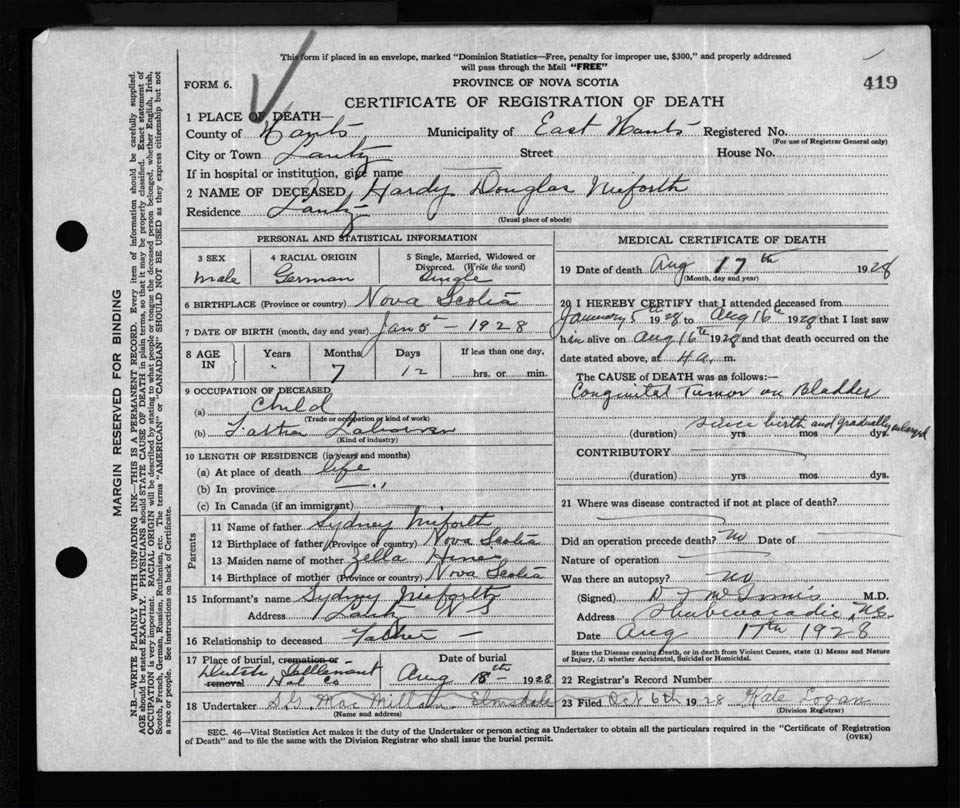 This form if placed in an envelope, marked "Dominion Statistics—Free, penalty for improper use, $300," and properly addressed
will pass through the Mail "FREE"
FORM 6.
PROVINCE OF NOVA SCOTIA
419
CERTIFICATE OF REGISTRATION OF DEATH
1 PLACE OF DEATH—
County of Hants Municipality of East Hants Registered No.
(For use of Registrar General only)
City or Town Lantz Street House No.
If in hospital or institution, give name
2 NAME OF DECEASED Hardy Douglas Nieforth
Residence Lantz
(Usual place of abode)
PERSONAL AND STATISTICAL INFORMATION
3 SEX 4 RACIAL ORIGIN 5 Single, Married, Widowed or
Divorced. (Write the word)
male German Single
6 BIRTHPLACE (Province or country) Nova Scotia
7 DATE OF BIRTH (month, day and year) Jan 5th - 1928
8 AGE IN Years Months Days If less than one day,
" 7 12 hrs. or min.
9 OCCUPATION OF DECEASED
(a) Child
(Trade or occupation or kind of work)
(b) Father Labourer
(Kind of industry)
10 LENGTH OF RESIDENCE (in years and months)
(a) At place of death life
(b) In province "
(c) In Canada (if an immigrant)
Parents
11 Name of father Sydney Nieforth
12 Birthplace of father (Province or country) Nova Scotia
13 Maiden name of mother Zella Hines
14 Birthplace of mother (Province or country) Nova Scotia
15 Informant's name Sydney Nieforth
Address Lantz N S
16 Relationship to deceased Father
17 Place of burial, cremation or removal Date of burial
Dutch Settlement
Hal Co Aug 18th 1928
18 Undertaker S G MacMillan Elmsdale
(Name and address)
MEDICAL CERTIFICATE OF DEATH
19 Date of death Aug 17th 1928
(Month, day and year)
20 I HEREBY CERTIFY that I attended deceased from
January 5th 1928 to Aug 16th 1928 that I last saw
him alive on Aug 16th 1928 and that death occurred on the
date stated above, at 4 a. m.
The CAUSE OF DEATH was as follows:—
Congenital Tumor on Bladder
since birth and gradually enlarged
(duration) yrs. mos. dys.
CONTRIBUTORY
(duration) yrs. mos. dys.
21 Where was disease contracted if not at place of death?
Did an operation precede death? no Date of
Nature of operation
Was there an autopsy? no
(Signed) D F McInnis M.D.
Address Shubenacadie, NS
Date Aug 17th 1928
State the Disease causing Death, or in death from Violent Causes, state (1) Means and Nature
of Injury, (2) whether Accidental, Suicidal or Homicidal.
22 Registrar's Record Number
23 Filed Oct 6th 1928 Kate Logan
(Division Registrar)
SEC. 46—Vital Statistics Act makes it the duty of the Undertaker or person acting as Undertaker to obtain all the particulars required in the "Certificate of Registration
of Death" and to file the same with the Division Registrar who shall issue the burial permit.
(OVER)
MARGIN RESERVED FOR BINDING
N.B.—WRITE PLAINLY WITH UNFADING INK—THIS IS A PERMANENT RECORD. Every item of information should be carefully supplied.
AGE should be stated EXACTLY. PHYSICIANS should STATE CAUSE OF DEATH in plain terms, so that it may be properly classified. Exact statement of
OCCUPATION is very important. RACIAL ORIGIN will be described by stating to what people or tongue the deceased person belonged, whether English, Irish,
Scotch, French, German, Russian, Ruthenian, etc. The terms "AMERICAN" or "CANADIAN" SHOULD NOT BE USED as they express citizenship but not
a race or people. See instructions on back of Certificate.